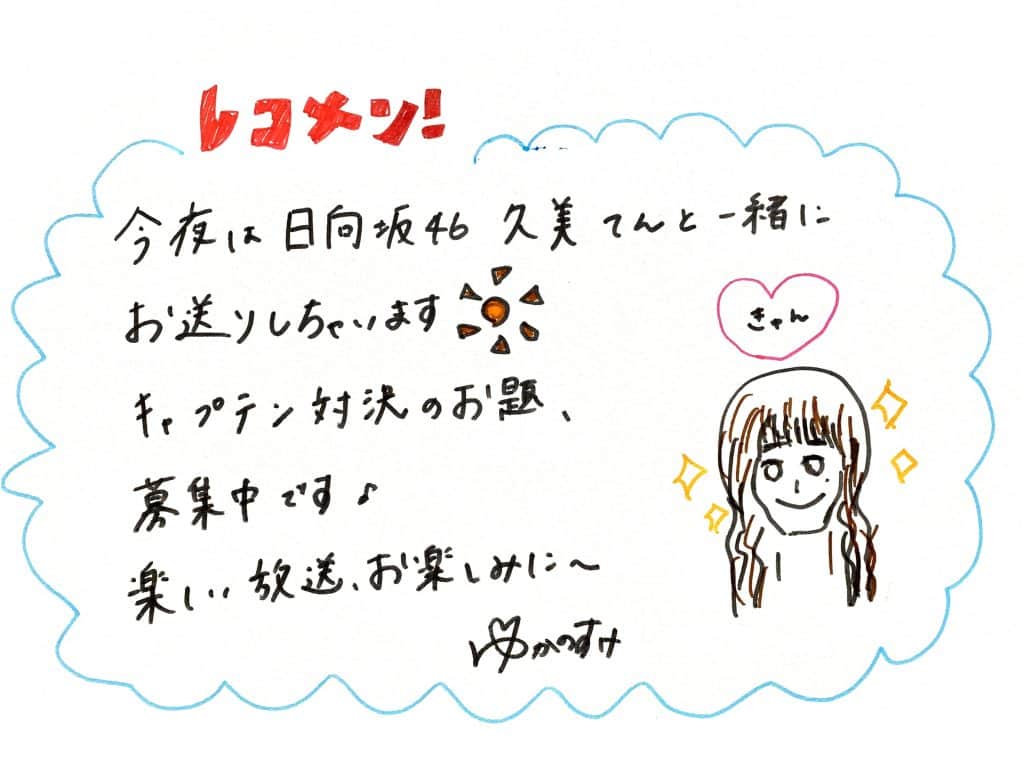 レコメン!
今夜は日向坂46 久美てんと一緒に
お送りしちゃいます
キャプテン対決のお題、
募集中です♪
楽しい放送、お楽しみに〜
ゆかのすけ
きゃん